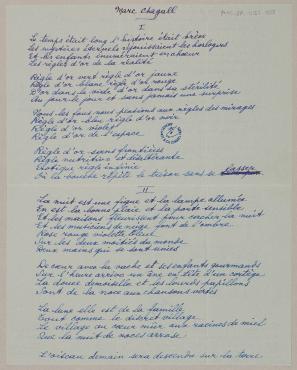 Marc Chagall
I
Le temps était long l'histoire était brève
Les mystères éternels réjouissaient les horloges
Et les enfants énuméraient en chœur
Les règles d'or de la réalité
Règle d'or vert règle d'or jaune
Règle d'or blanc règle d'or rouge
D'or dans la ... d'or dans la stérilité
Au jour le jour et sans jamais une surprise
Nous les fous nous pensions aux règles des mirages
Règle d'or bleu règle d'or noir
Règle d'or violet
Règle d'or de l'espace
Règle d'or sans frontières
Règle nutritive et désaltérante
Exotique règle infinie
Où la bouche répète le baiser sans se lasser
II
La nuit est une figue et la lampe allumée
En est la bonne place en la porte sensible
Et les maisons fleurissent pour cacher la nuit
Et les musiciens de neige font de l'ombre
Rose rouge violette bleue
Sur les deux moitiés du monde
Deux mains qui se sont unies
De cœur avec la vache et ses enfants gourmands
Sur l'heure arriva un âne en tête d'un cortège
La douce demoiselle et les lourds papillons
Sont de la noce aux chansons vertes
La lune elle est de la famille
Tout comme le discret village
Le village au cœur mûr aux racines de miel
Que la nuit de noces arrose
L'oiseau demain sera descendu sur la terre